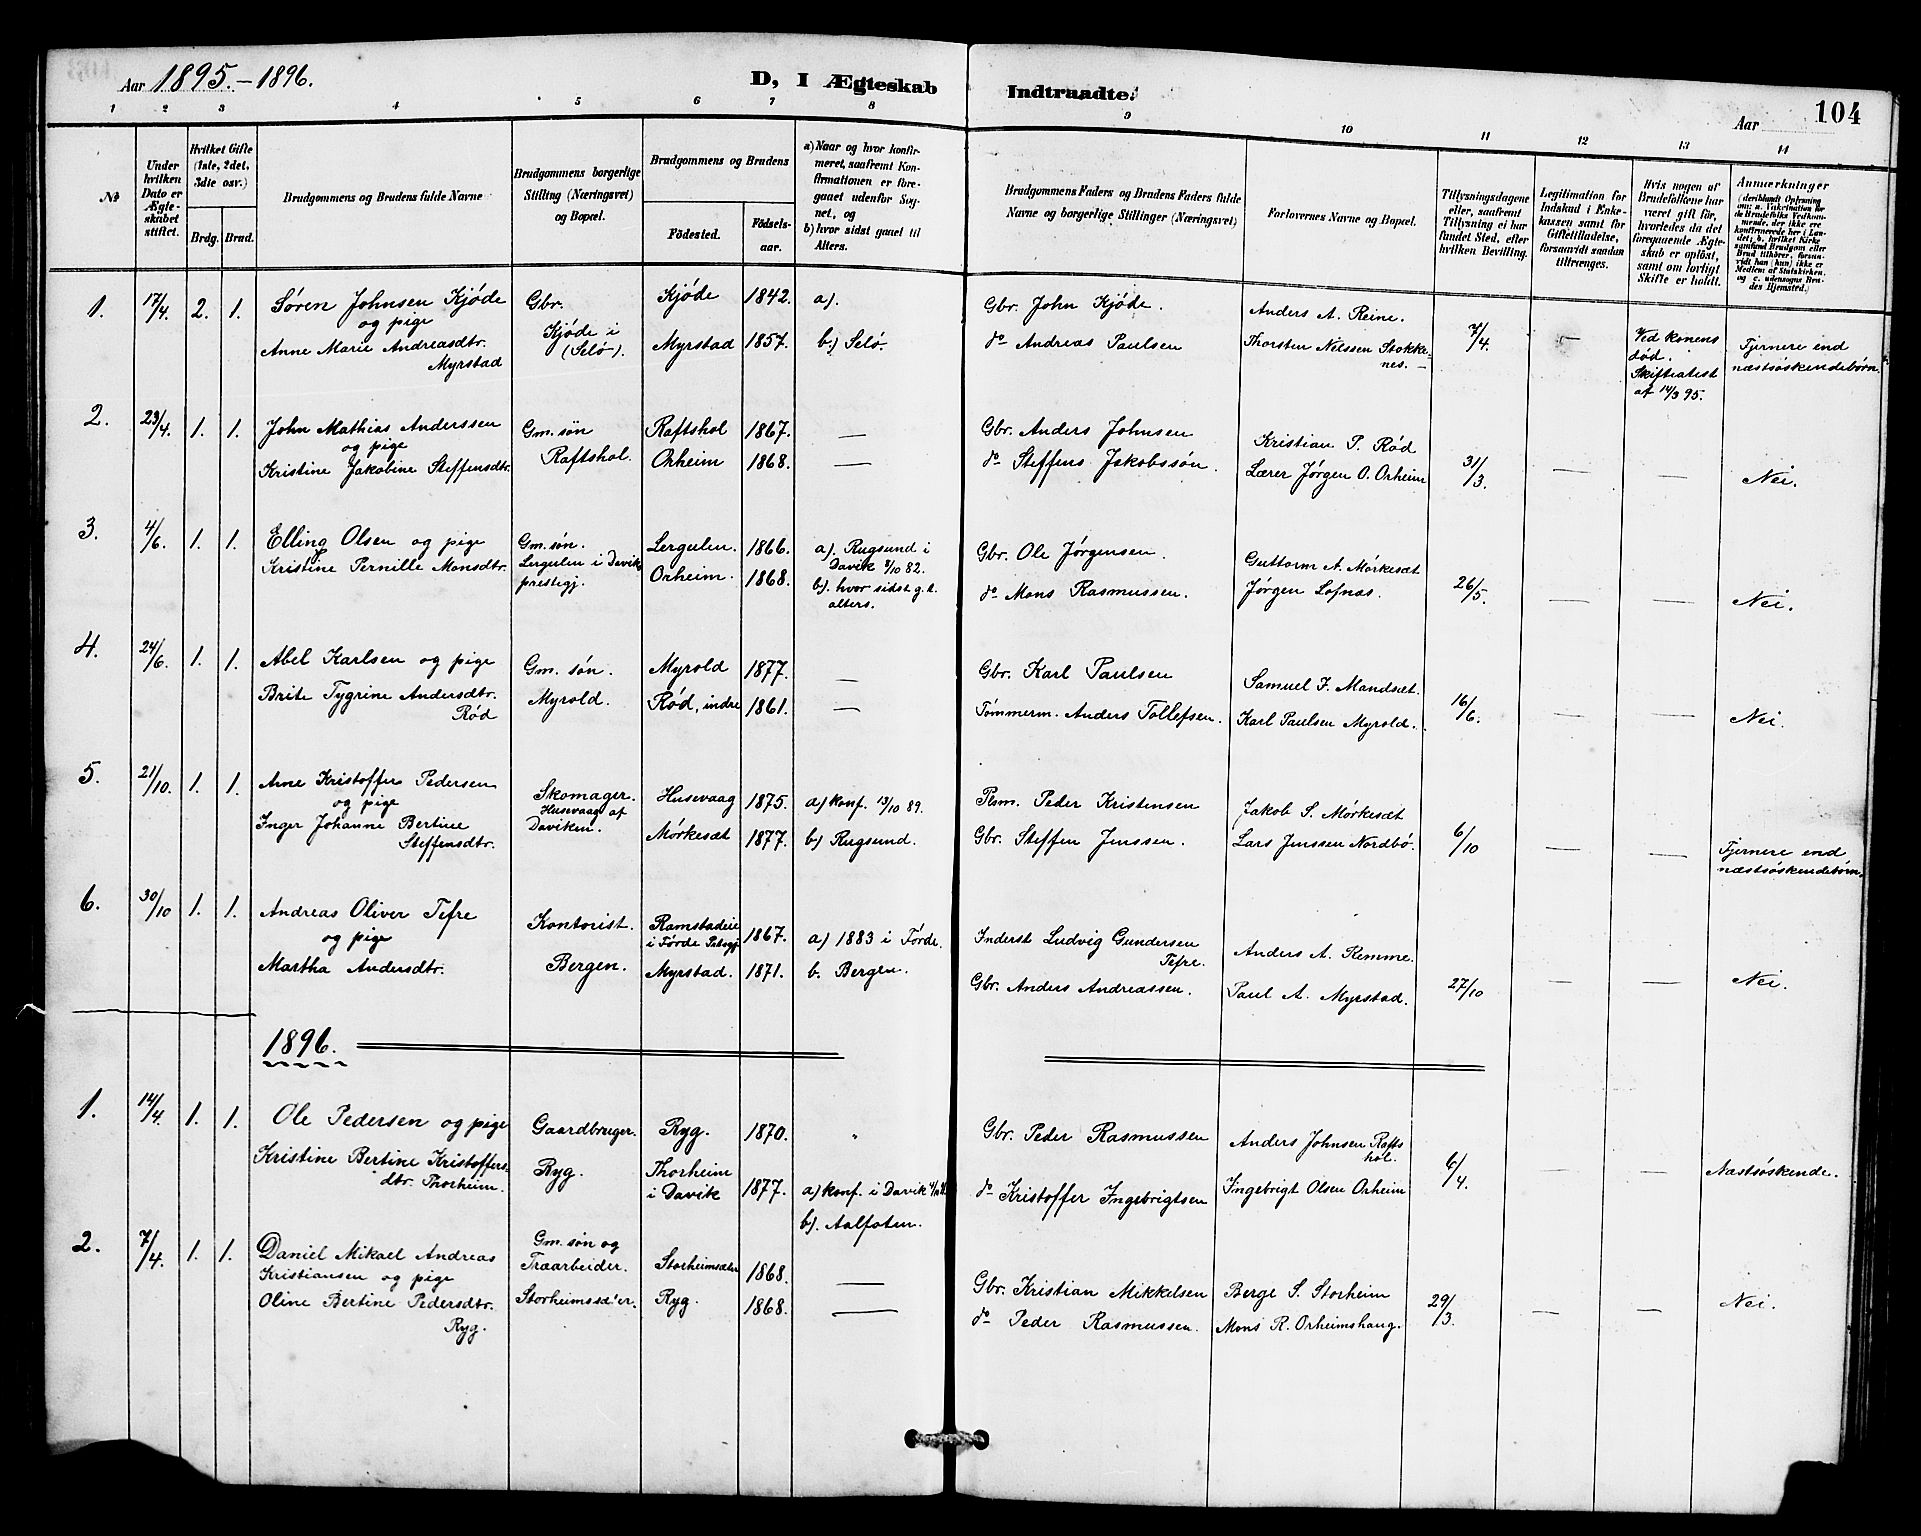 Aar 1895.-1896.
D, I Ægteskab Indtraadte.
Aar 104
1 2 3 4 5 6 7 8 9 10 11 12 13 14
№
Under hvilken Dato er Ægteskabet stiftet.
Hvilket Gifte (1ste, 2det, 3die osv.)
Brdg. Brud.
Brudgommens og Brudens fulde Navne
Brudgommens borgerlige Stilling (Næringsvei) og Bopæl.
Brudgommens og Brudens
Fødested. Fødselsaar.
a) Naar og hvor konfirmeret, saafremt Konfirmationen er foregaaet udenfor Sognet, og
b) hvor sidst gaaet til Alters.
Brudgommens Faders og Brudens Faders fulde Navne og borgerlige Stillinger (Næringsvei)
Forlovernes Navne og Bopæl.
Tillysningsdagene eller, saafremt Tillysning ei har fundet Sted, efter hvilken Bevilling.
Legitimation for Indskud i Enkekassen samt for Giftetilladelse, forsaavidt saadan tiltrænges.
Hvis nogen af Brudefolkene har været gift før, hvorledes da det foregaaende Ægteskab er opløst, samt om lovligt Skifte er holdt.
Anmærkninger
1. 17/4. 2. 1. Søren Johnsen Kjøde Gbr. Kjøde 1842. a). Gbr. John Kjøde. Anders A. Reine. 7/4. — Ved konens død. Skifteattest af 14/3 95. Fjernere end næstsøskendebørn.
og pige Kjøde i (Selø).
Anne Marie Andreasdtr. Myrstad 1857. b) Selø. do Andreas Paulsen Thorsten Nilssen Stokkenes. —
Myrstad
2. 23/4. 1. 1. John Mathias Anderssen Gm. søn Raftshol 1867. — Gbr. Anders Johnsen Kristian P. Rød
og pige Raftshol.
Kristine Jakobine Steffensdtr. Orheim 1868. — do Steffens Jakobssøn. Lærer Jørgen O. Orheim 31/3. — — Nei.
3. 4/6. 1. 1. Elling Olsen og pige Gm. søn. Lergulen. 1866. a). Rugsund i Davik 8/10 82. Gbr. Ole Jørgensen. Guttorm A. Mørkesæt
Kristine Pernille Monsdtr. Lergulen i Davik prestegj. Orheim. 1868. b). hvor sidst g. t. alters. do Mons Rasmussen. Jørgen Lofnæs. 26/5. — — Nei.
4. 24/6. 1. 1. Abel Karlsen og pige Gm. søn. Myrold 1877. — Gbr. Karl Paulsen Samuel J. Mandsæt.
Brite Tygrine Andersdtr. Myrold. Rød, indre 1861. — Tømmerm. Anders Tollefsen. Karl Paulsen Myrold. 16/6. — — Nei.
Rød
5. 21/10. 1. 1. Arne Kristoffer Pedersen Skomager. Husevaag 1875. a) konf. 13/10 89. Plsm. Peder Kristensen Jakob S. Mørkesæt
og pige Husevaag af Daviken.
Inger Johanne Bertine Mørkesæt 1877. b) Rugsund. Gbr. Steffen Jenssen. Lars Jenssen Nordbø. 6/10 — — Fjernere end næstsøskendebørn.
Steffensdtr.
6. 30/10 1. 1. Andreas Oliver Tefre Kontorist. Ramstadeie i Førde 1867. a) 1883 i Førde. Inderst Ludvig Gundersen Tefre. Anders A. Remme.
og pige
Martha Andersdtr. Bergen. Myrstad. 1871. b. Bergen. Gbr. Anders Andreassen. Paul A. Myrstad. 27/10 — — Nei.
1896.
1. 14/4. 1. 1. Ole Pedersen og pige Gaardbruger. Ryg. 1870. " Gbr. Peder Rasmussen Anders Johnsen Raftshol.
Kristine Bertine Kristoffersdtr. Thorheim. Ryg. Thorheim i Davik 1877. a) konf. i Davik do Kristoffer Ingebrigtsen Ingebrigt Olsen Orheim 6/4. — — Næstsøskende.
b). Aalfoten.
2. 7/4. 1. 1. Daniel Mikael Andreas Gm. søn og Træarbeider. Storheimsæter 1868. — Gbr. Kristian Mikkelsen Berge S. Storheim
Kristiansen og pige
Oline Bertine Pedersdtr. Storheimssæ'er. Ryg. 1868. — do Peder Rasmussen. Mons R. Orheimshaug. 29/3. — — Nei.
Ryg.